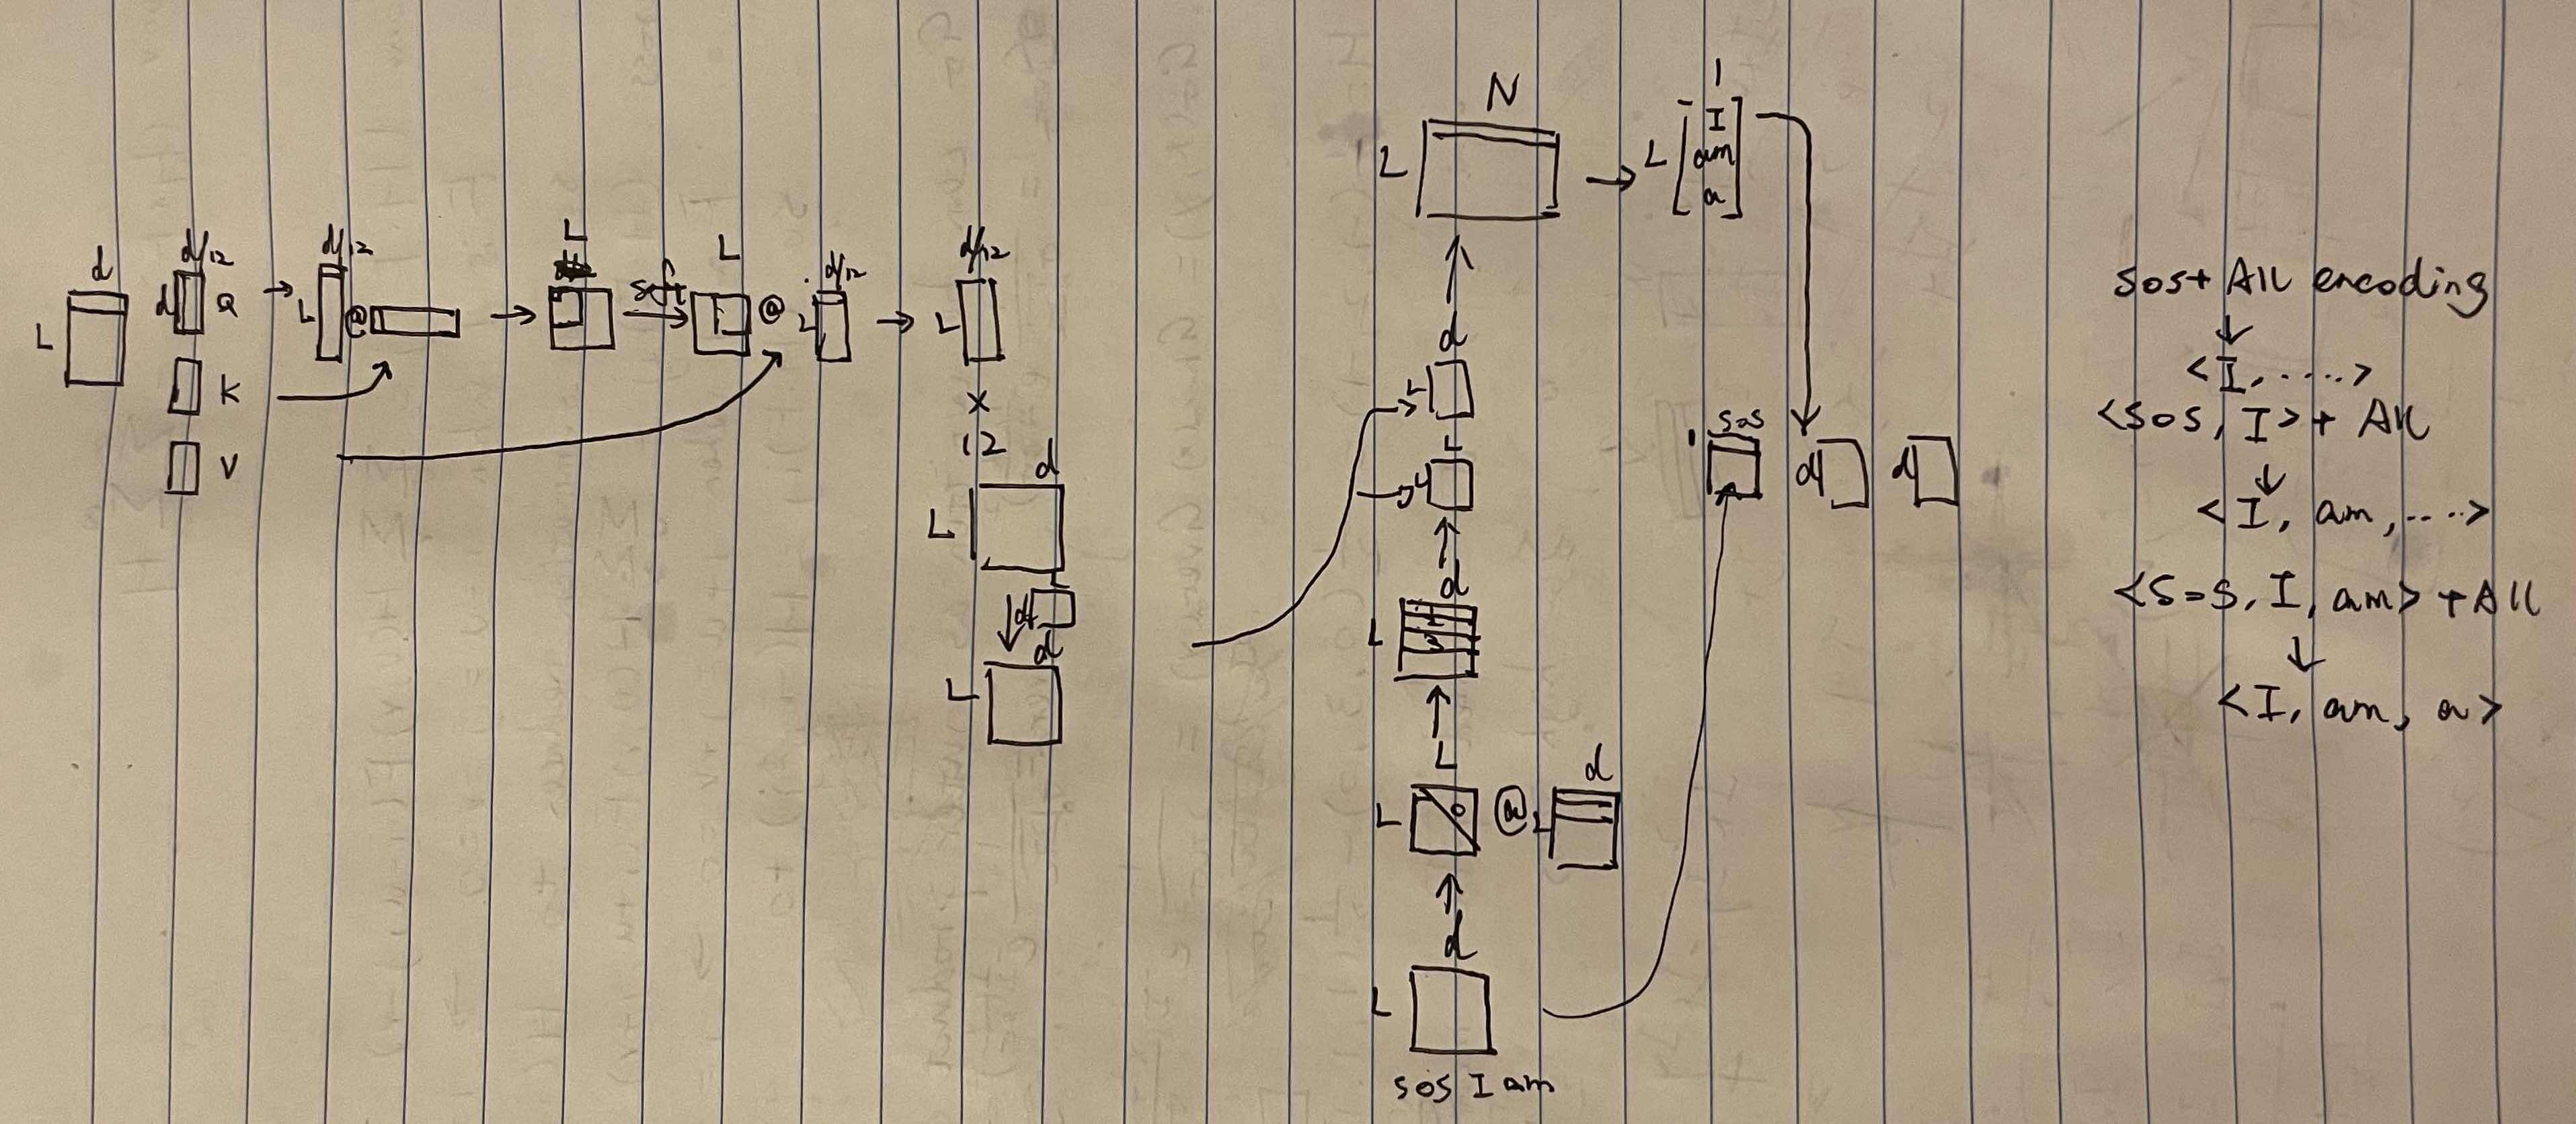 d
L
d/12
d Q
K
V
d/12
L @
L
soft
L
@ L d/12
d/12
L
x
12
d
L
d
d
L
N
L
1
L [ I
am
a ]
d
L
L
L
d
L
1
2
3
L
L 0 @ L d
d
L
sos I am
1 sos
d d
sos + All encoding
↓
<I, .....>
<sos, I> + All
↓
<I, am, ....>
<sos, I, am> + All
↓
<I, am, a>